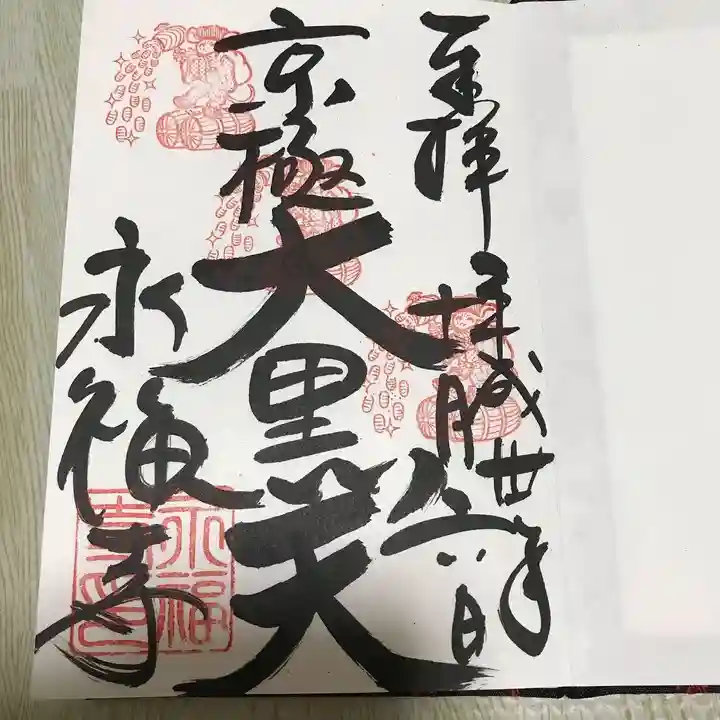 奉拝
平成丗年
十月
六日
京極
大黒天
永福寺
永福
寺印